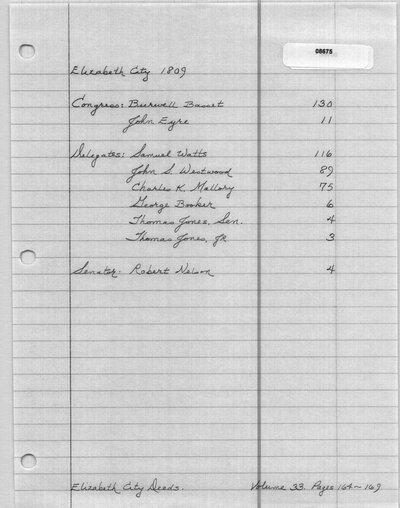 08675
Elizabeth City 1809
Congress: Burwell Basset 130
John Eyre 11
Delegates: Samuel Watts 116
John S. Westwood 89
Charles K. Mallory 75
George Booker 6
Thomas Jones, Sen. 4
Thomas Jones, JR 3
Senator: Robert Nelson 4
Elizabeth City Deeds. Volume 33. Pages 164~169